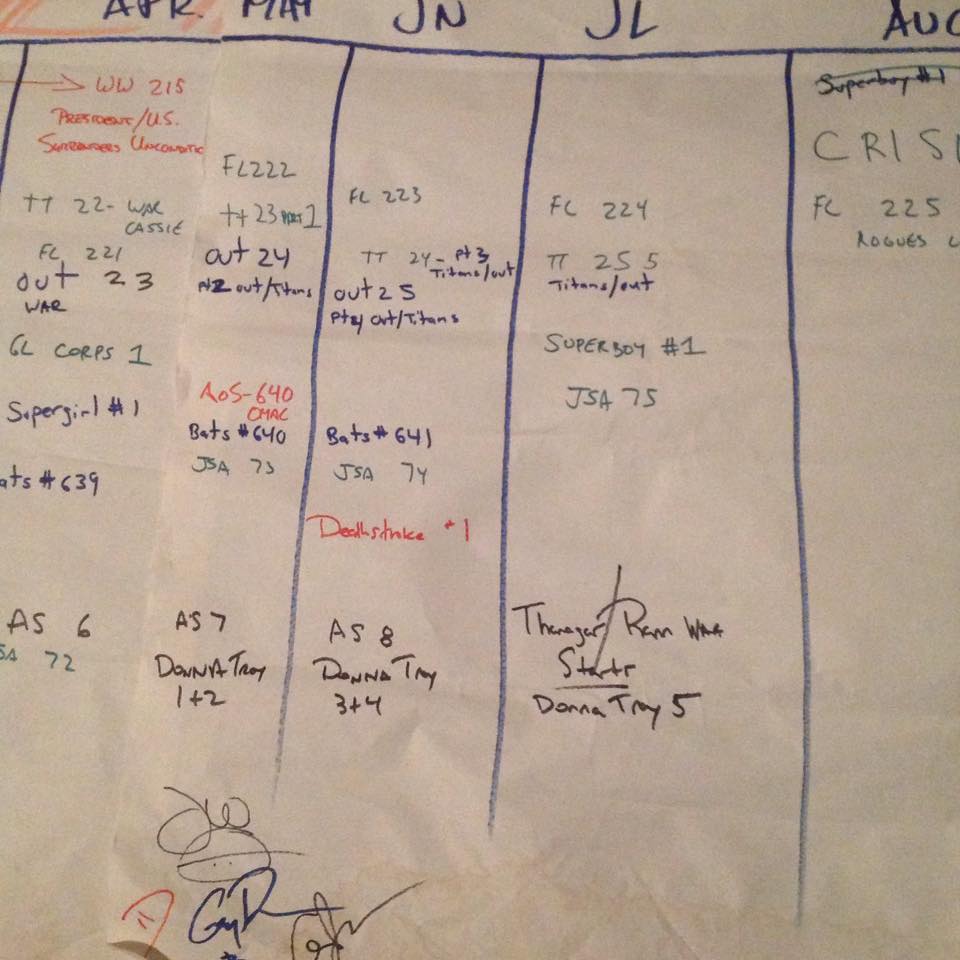 APR.
MAY
JN
JL
AUG
WW 215
PRESIDENT/U.S.
SURRENDERS UNCONDITIC
TT 22- WAR
CASSIE
FL 221
OUT 23
WAR
GL CORPS 1
Supergirl #1
ats #639
AS 6
SA 72
FL222
TT 23 PART 1
OUT 24
Pt2 OUT/Titans
AOS-640
OMAC
Bats #640
JSA 73
AS 7
DONNA TROY
1+2
FL 223
TT 24- Pt 3
Titans/out
OUT 25
Pt4/ OUT/Titans
Bats #641
JSA 74
Deathstroke #1
AS 8
DONNA TROY
3+4
FL 224
TT 25 5
Titans/out
SUPERBOY #1
JSA 75
Thanagar/Rann WAR
Starts
Donna Troy 5
Superboy #1
CRISI
FL 225
ROGUES